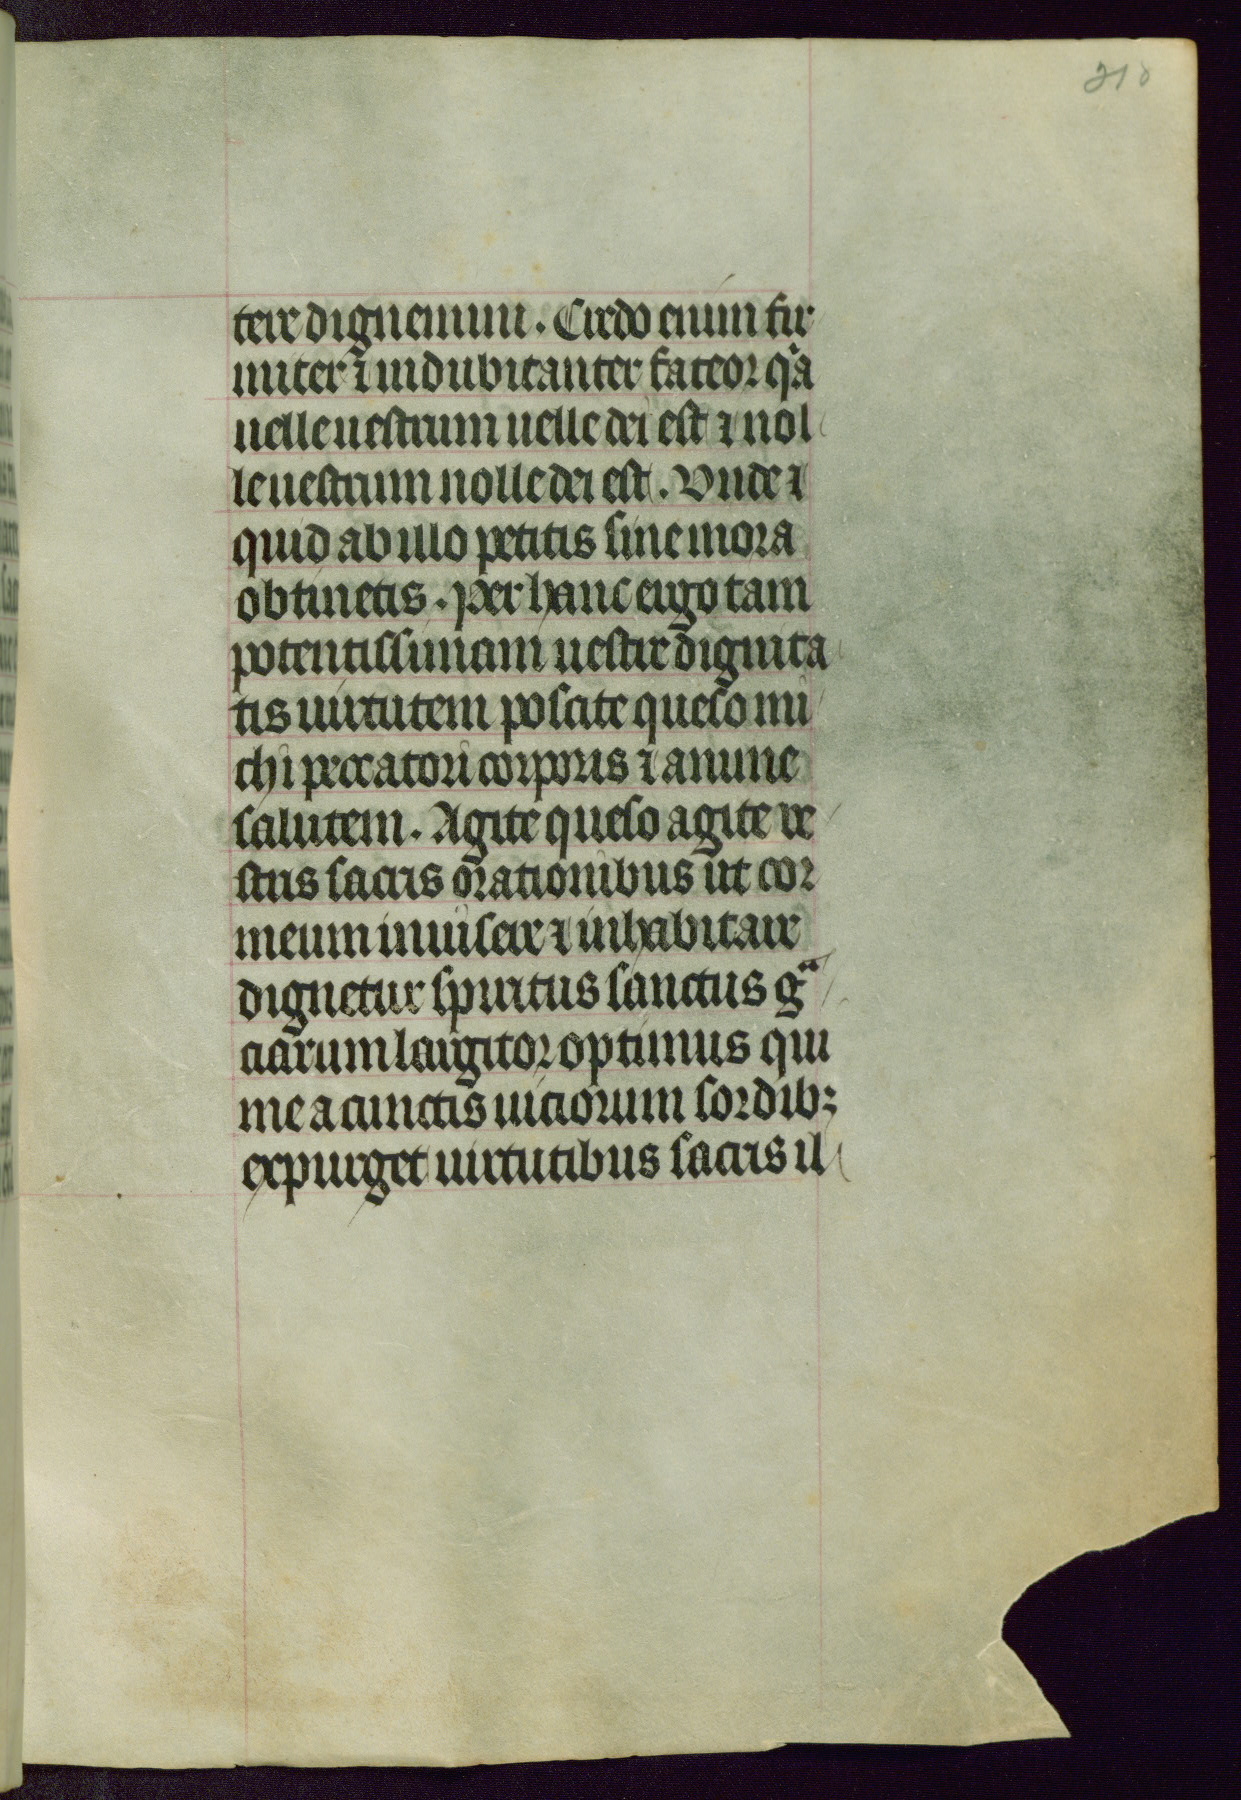 218
tere dignemini. Credo enim fir
miter ⁊ indubitanter fateor qa
uelle uestrum uelle dei est ⁊ nol
le uestrum nolle dei est. Vnde ⁊
quid ab illo petitis sine mora
obtinetis. per hanc ergo tam
potentissimam uestre dignita
tis uirtutem poscite queso mi
chi peccatori corporis ⁊ anime
salutem. Agite queso agite ve
stris sacris orationibus ut cor
meum inuisere ⁊ inhabitare
dignetur spiritus sanctus gᵃ
ciarum largitor optimus qui
me a cunctis uiciorum sordibꝫ
expurget uirtutibus sacris il